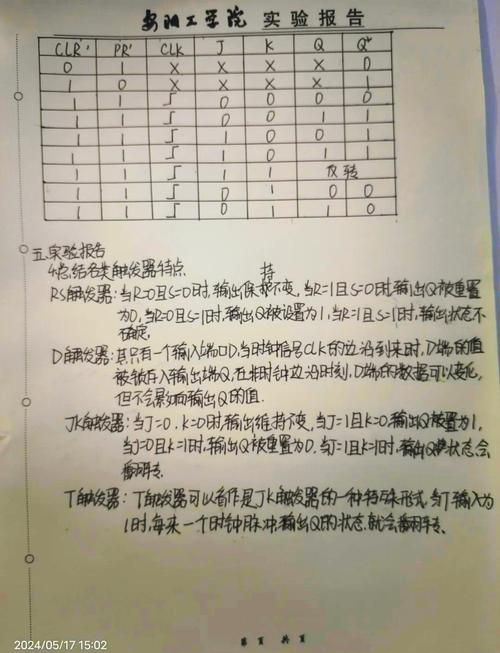 安阳工学院 实验报告
CLR' PR' CLK J K Q Q*
0 1 X X X X 0
1 0 X X X X 1
1 1 ↑ 0 0 0 0
1 1 ↑ 0 0 1 1
1 1 ↑ 1 0 0 1
1 1 ↑ 1 0 1 1
1 1 ↑ 1 1 反转
1 1 ↑ 0 1 0 0
1 1 ↑ 0 1 1 0
五.实验报告
1.总结各类触发器特点
RS触发器:当R=0且S=0时,输出保持不变,当R=1且S=0时,输出Q被重置
为0,当R=0且S=1时,输出Q被设置为1,当R=1且S=1时,输出状态不
确定.
D触发器:其只有一个输入端口D,当时钟信号CLK的边沿到来时,D端的值
被锁存入输出端Q,在非时钟边沿时刻,D端的数据可以变化,
但不会影响输出Q的值.
JK触发器:当J=0,K=0时,输出维持不变,当J=1且K=0,输出Q被置为1,
当J=0且K=1时,输出Q被重置为0.当J=1且K=1时,输出Q状态会
翻转.
T触发器:T触发器可以看作是JK触发器的一种特殊形式,当T输入为
1时,每来一个时钟脉冲,输出Q的状态就会翻转.
第 页 共 页
2024/05/17 15:02